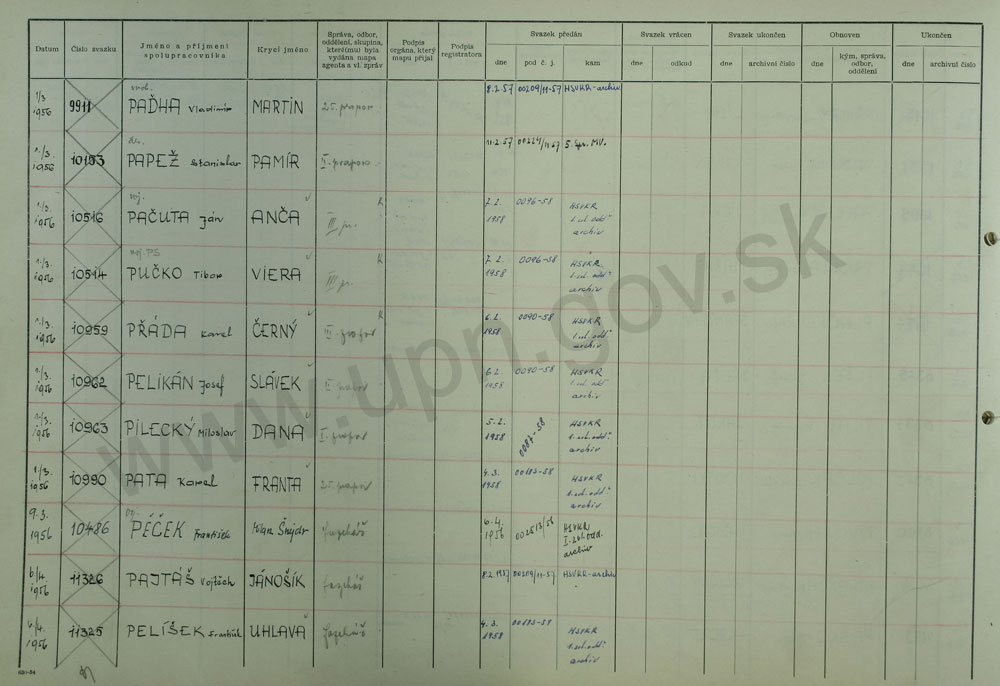 Datum
Číslo svazku
Jméno a příjmení
spolupracovníka
Krycí jméno
Správa, odbor,
oddělení, skupina,
které(mu) byla
vydána mapa
agenta a vl. zpráv
Podpis
orgána, který
mapu přijal
Podpis
registrátora
Svazek předán
dne
pod č. j.
kam
Svazek vrácen
dne
odkud
Svazek ukončen
dne
archivní číslo
Obnoven
dne
kým, správa,
odbor,
oddělení
Ukončen
dne
archivní číslo
1/3
1956
9911
PAĎHA Vladimír
MARTIN
25. prapor
8.2.57
00209/11-57
HSVKR-archiv
1./3.
1956
10153
PAPEŽ Stanislav
PAMÍR
I. prapor
11.2.57
5. Spr. MV.
1./3.
1956
10516
PAČUTA Ján
ANČA
III. pr.
7.2.
1958
0096-58
HSVKR
archiv
1./3.
1956
10514
PUČKO Tibor
VIERA
III. pr.
7.2.
1958
0096-58
HSVKR
archiv
1./3.
1956
10959
PŘÁDA Karel
ČERNÝ
6.2.
1958
0090-58
HSVKR
archiv
1./3.
1956
10962
PELIKÁN Josef
SLÁVEK
6.2
1958
0090-58
HSVKR
archiv
1./3.
1956
10963
PILECKÝ Miloslav
DANA
I. prapor
5.2.
1958
0087-58
HSVKR
archiv
1./3.
1956
10990
PATA Karel
FRANTA
25. prapor
4.3.
1958
00183-58
HSVKR
archiv
9.3.
1956
10486
PÉČEK František
Milan Šnýdr
6.4.
1956
HSVKR
archiv
6/4.
1956
11326
PAJTÁŠ Vojtěch
JÁNOŠÍK
8.2.1957
00209/11-57.
HSVKR-archiv
6./4.
1956
11325
PELÍŠEK František
UHLAVA
4.3.
1958
00183-58
HSVKR
archiv
www.upn.gov.sk